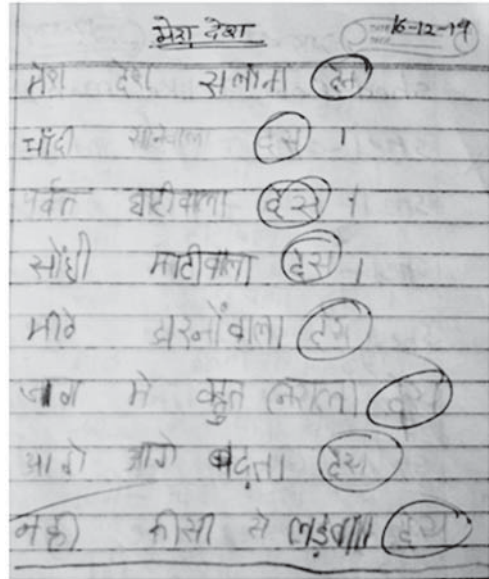 मेरा देश 16-12-19
मेरा देश सलोना देस
चाँदी सोनेवाला देस ।
पर्वत घाटीवाला देस ।
सोंधी माटीवाला देस ।
मीठे झरनोंवाला देस
जग मे बहुत निराला देस
आगे आगे बढ़ता देस
नही कीसी से लड़ता देस